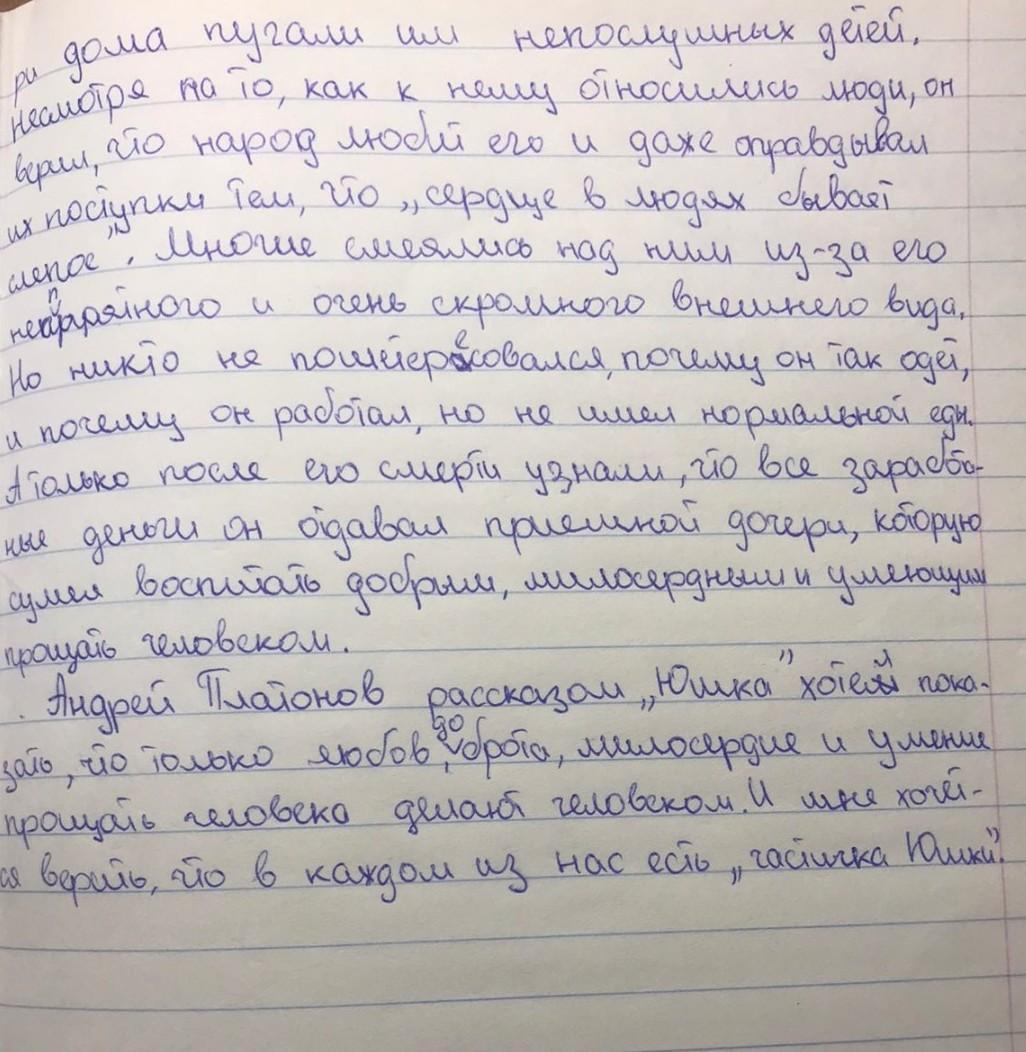 ри дома пугали им непослушных детей.
Несмотря на то, как к нему относились люди, он
верил, что народ любит его и даже оправдывал
их поступки тем, что „сердце в людях бывает
слепое". Многие смеялись над ним из-за его
неопрятного и очень скромного внешнего вида.
Но никто не поинтересовался, почему он так одет,
и почему он работал, но не имел нормальной еды.
А только после его смерти узнали, что все заработа-
ные деньги он отдавал приемной дочери, которую
сумел воспитать добрым, милосердным и умеющим
прощать человеком.
Андрей Платонов рассказом „Юшка" хотел пока-
зать, что только любов, доброта, милосердие и умение
прощать человека делают человеком. И мне хочет-
ся верить, что в каждом из нас есть „частичка Юшки".